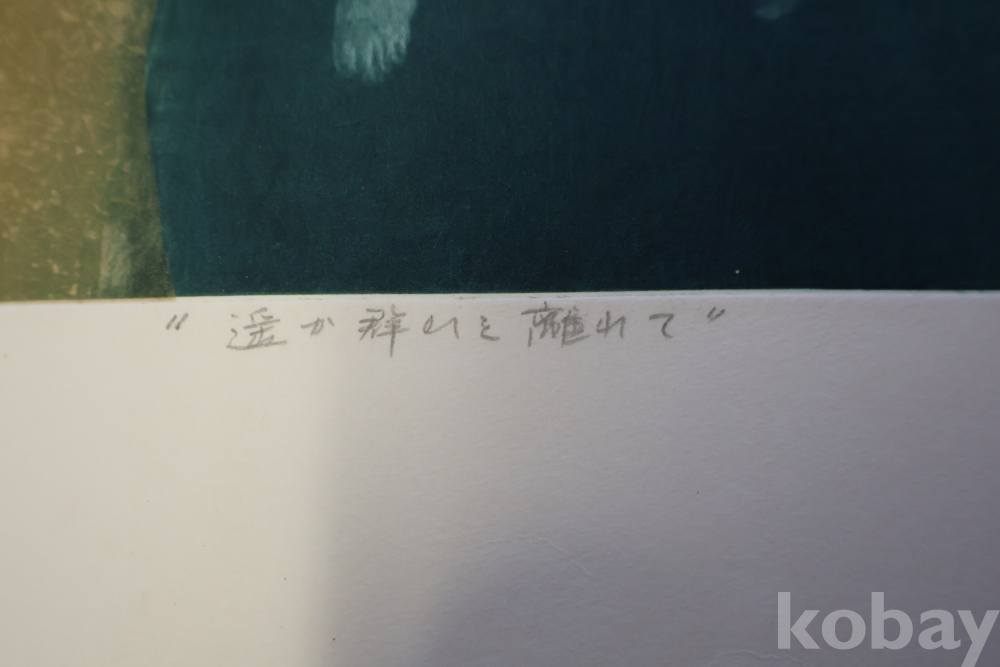 〃遥か群れを離れて〃
kobay